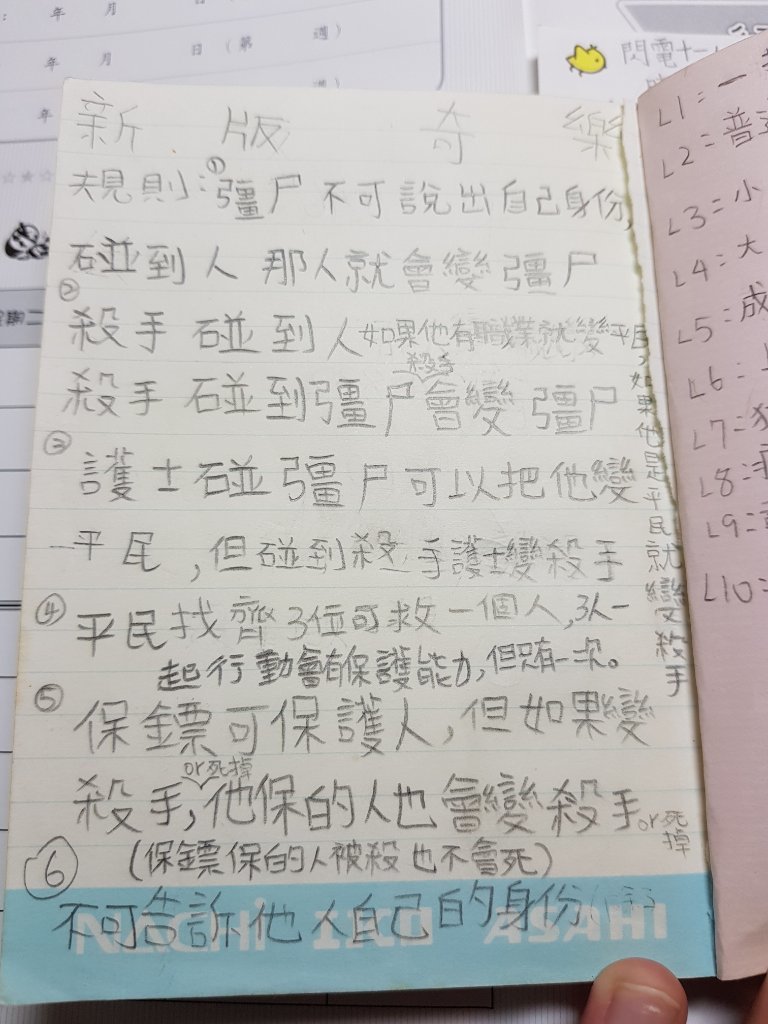 年 月 日 (第 週)
年 月 日 (第 週)
年
閃電十一
新版奇樂
規則:①彊尸不可說出自己身份,
碰到人 那人就會變彊尸
②
殺手碰到人如果他有職業就變平民,如果他是平民就變殺手
殺手
殺手碰到彊尸會變彊尸
③
護士碰彊尸可以把他變
平民,但碰到殺手護士變殺手
④平民找齊3位可救一個人,3人一
起行動會有保護能力,但只有一次。
⑤
保鏢可保護人,但如果變
or死掉
殺手,他保的人也會變殺手or死掉
⑥ (保鏢保的人被殺也不會死)
不可告訴他人自己的身份
NLIGHT IZO ASAHI
L1:一
L2:普
L3:小
L4:大
L5:成
L6:上
L7:
L8:
L9:
L10: